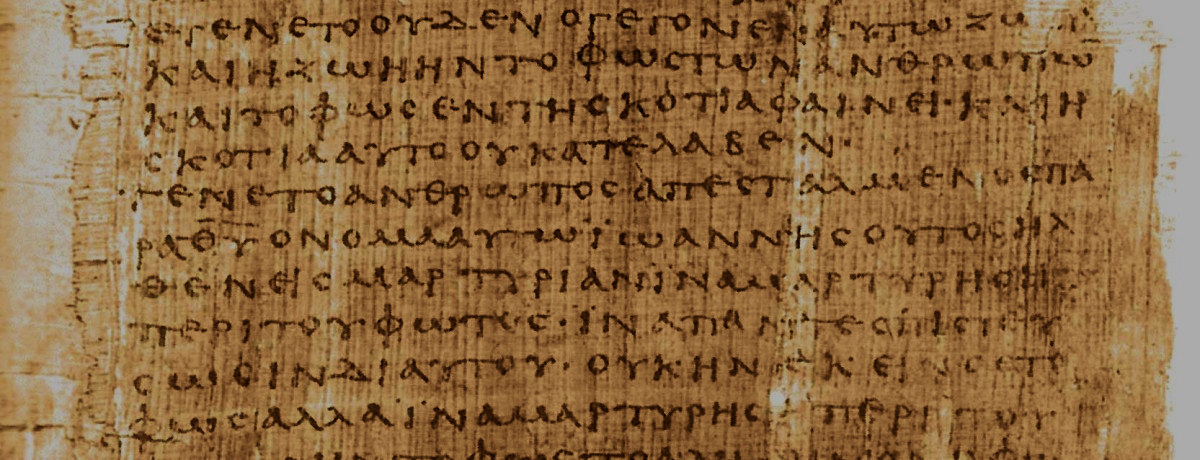 ΕΓΕΝΕΤΟΟΥΔΕΝ ΟΓΕΓΟΝΕΝ·ΑΥΤΩ
ΚΑΙΗΖΩΗΗΝΤΟΦΩΣΤΩΝΑΝΘΡΩΠΩ
ΚΑΙΤΟΦΩΣΕΝΤΗΣΚΟΤΙΑΦΑΙΝΕΙ·ΚΑΙΗ
ΣΚΟΤΙΑΑΥΤΟΟΥΚΑΤΕΛΑΒΕΝ·
·ΓΕΝΕΤΟΑΝΘΡΩΠΟΣΑΠΕΣΤΑΛΜΕΝΟΣΠΑ
ΡΑΘ̅Υ̅ΟΝΟΜΑΑΥΤΩΪΩΑΝΝΗΣΟΥΤΟΣΗΛ
ΘΕΝΕΙΣΜΑΡΤΥΡΙΑΝΪΝΑΜΑΡΤΥΡΗΣΗ
ΠΕΡΙΤΟΥΦΩΤΟΣ·ΪΝΑΠΑΝΤΕΣΠΙΣΤΕΥ
ΣΩΣΙΝΔΙΑΥΤΟΥ·ΟΥΚΗΝΕΚΕΙΝΟΣΤΟ
ΦΩΣΑΛΛΑΪΝΑΜΑΡΤΥΡΗΣΗΠΕΡΙΤΟΥ